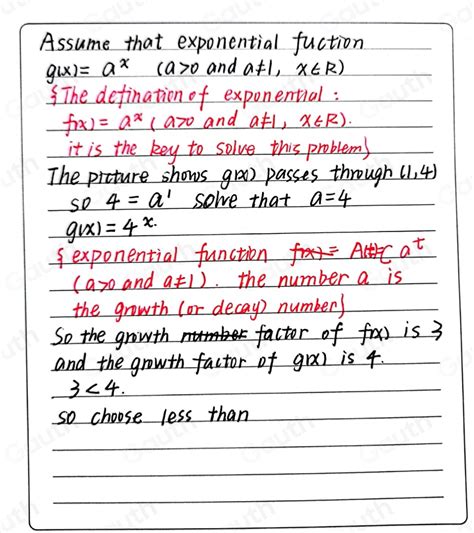 Assume that exponential fuction
g(x)= aˣ (a>0 and a≠1, x∈R)
{The defination of exponential :
f(x) = aˣ ( a>0 and a≠1, x∈R).
it is the key to solve this problem}
The picture shows g(x) passes through (1,4)
so 4 = a' solve that a=4
g(x) = 4ˣ.
{ exponential function f(x)= A(t)= aᵗ
(a>0 and a≠1). the number a is
the growth (or decay) number}
So the growth number factor of f(x) is 3
and the growth factor of g(x) is 4.
3<4.
so choose less than